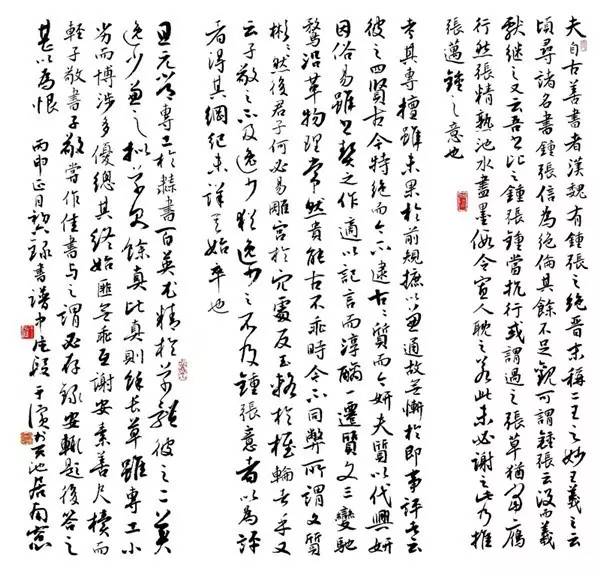 夫自古善書者漢魏有鍾張之絕晉末稱二王之妙王羲之云
頃尋諸名書鍾張信為絕倫其餘不足觀可謂鍾張云沒而羲
獻繼之又云吾書比之鍾張鍾當抗行或謂過之張草猶當鴈
行然張精熟池水盡墨假令寡人耽之若此未必謝之此乃推
張邁鍾之意也
考其專擅雖未果於前規摭以兼通故無慚於即事評者云
彼之四賢古今特絕而今不逮古古質而今妍夫質以代興妍
因俗易雖書契之作適以記言而淳醨一遷質文三變馳
騖沿革物理常然貴能古不乖時今不同弊所謂文質
彬彬然後君子何必易雕宮於穴處反玉輅於椎輪者乎又
云子敬之不及逸少猶逸少之不及鍾張意者以為評
者得其綱紀未詳其始卒也
且元常專工於隸書百英尤精於草體彼之二美
逸少兼之擬草則餘真比真則餘長草雖專工小
劣而博涉多優總其終始匪無乖互謝安素善尺牘而
輕子敬書子敬嘗作佳書與之謂必存錄安輒題後答之
甚以為恨 丙申正月 錄書譜中 段 池居南窗